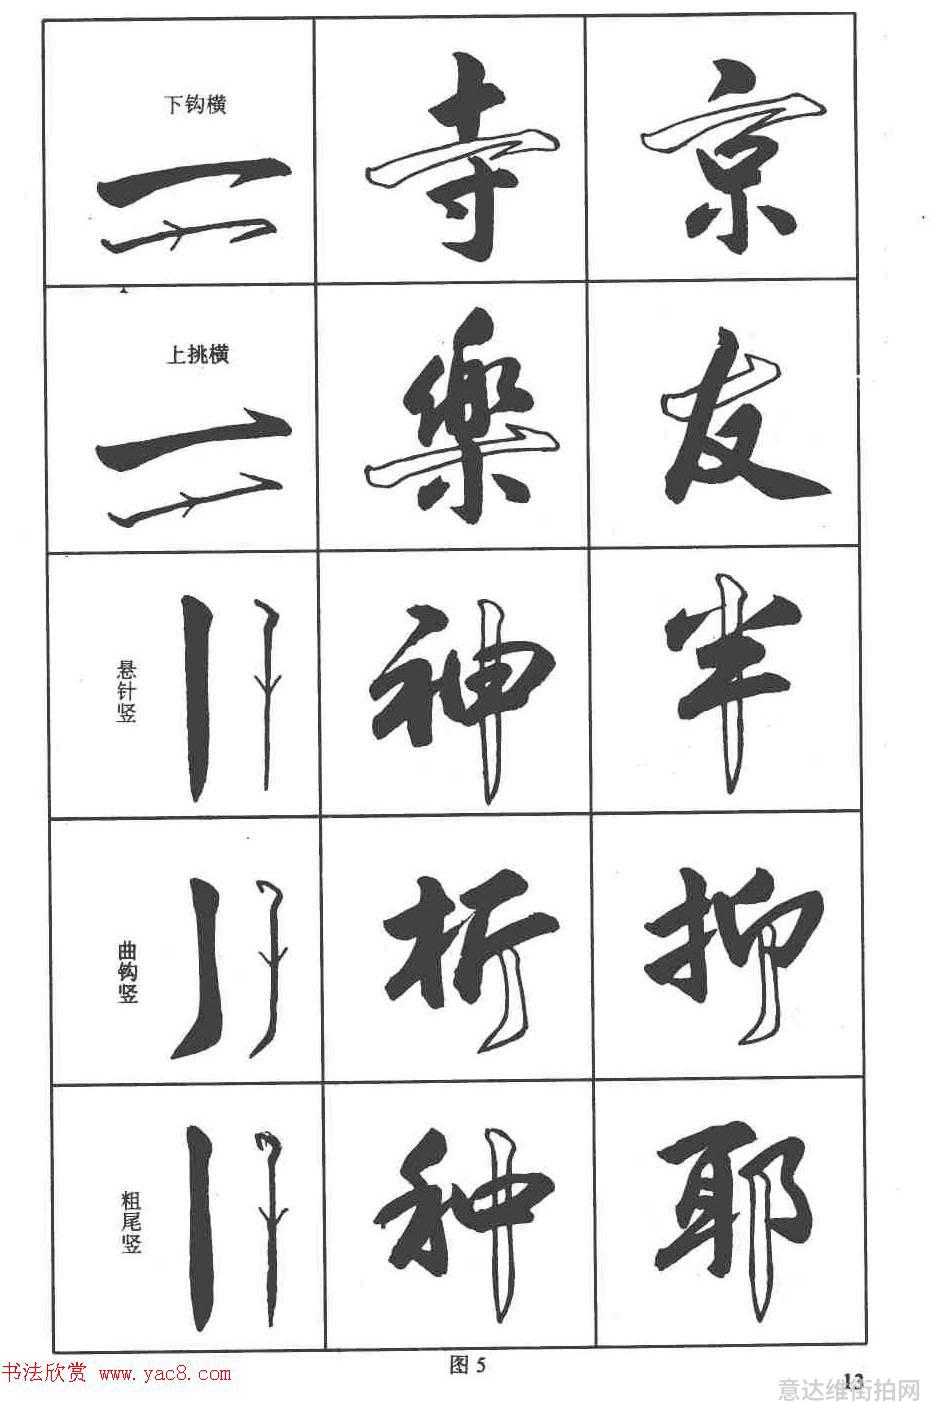 下钩横
寺
京
上挑横
樂
友
悬针竖
神
半
曲钩竖
析
抑
粗尾竖
种
耶
图5
13
书法欣赏 www.yac8.com
意达维街拍网